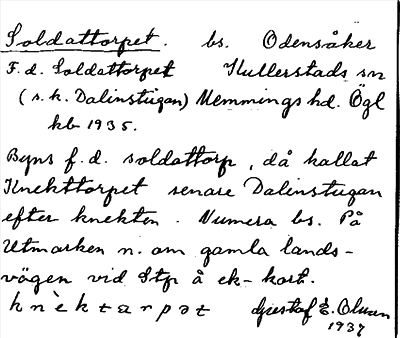 Soldattorpet. bs. Odensåker
F.d. Soldattorpet Kullerstads sn
(s.k. Dalinstugan) Memmings hd. Ögl
hb 1935.
Byns f.d. soldattorp, då kallat
Knekttorpet senare Dalinstugan
efter knekten. Numera bs. På
Utmarken n. om gamla lands-
vägen vid Stp å ek-kort.
knèktarpət Gustaf E. Olsson
1937